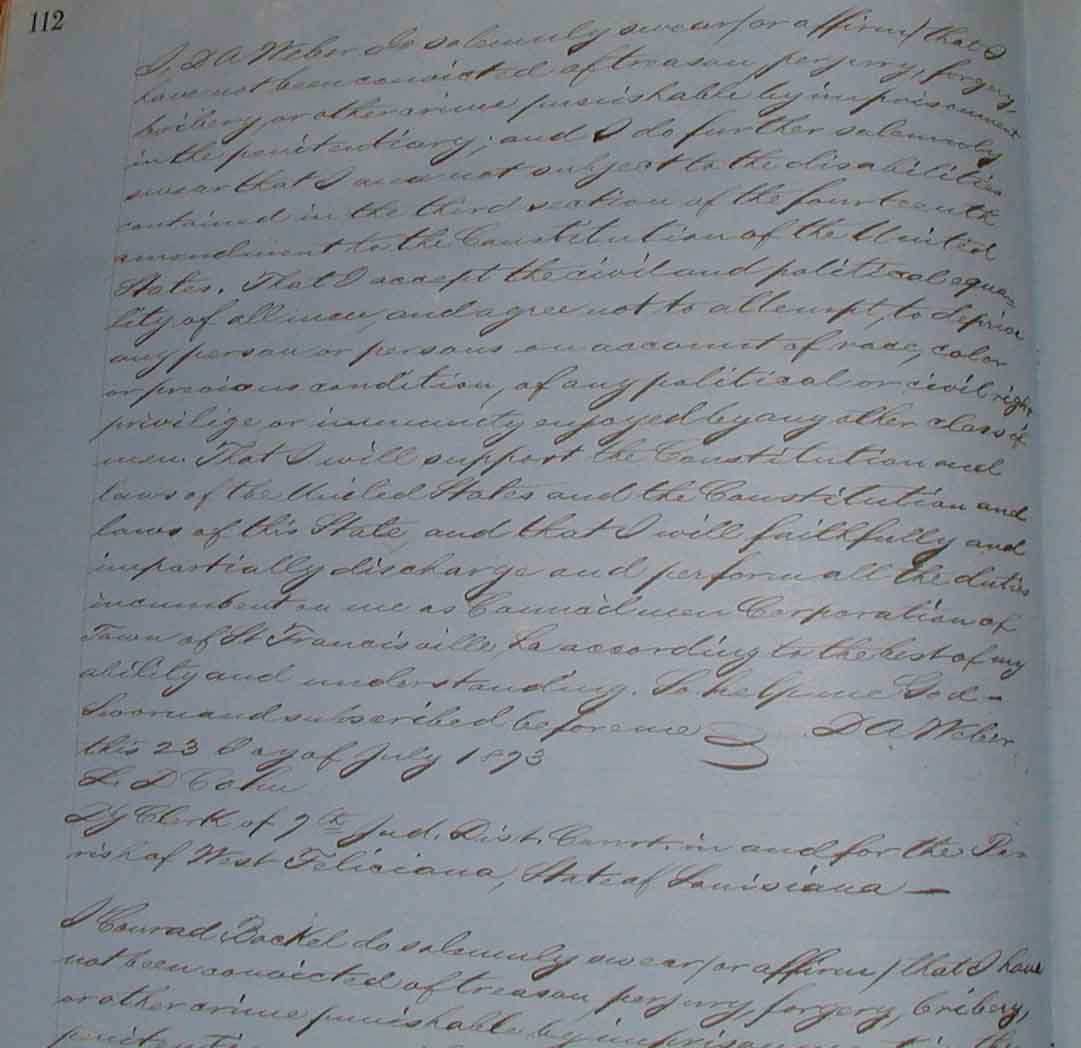 112
I, D A Weber do solemnly swear (or affirm) that I
have not been convicted of treason perjury, forgery,
bribery, or other crime punishable by imprisonment
in the penitentiary; and I do further solemnly
swear that I am not subject to the disabilities
contained in the third section of the fourteenth
amendment to the Constitution of the United
States. That I accept the civil and political equa-
lity of all men, and agree not to attempt, to deprive
any person or persons on account of race, color
or previous condition, of any political or civil right
privilige or immunity enjoyed by any other class of
men. That I will support the Constitution and
laws of the United States and the Constitution and
laws of this State and that I will faithfully and
impartially discharge and perform all the duties
incumbent on me as Councilmen Corporation of
Town of St Francisville La according to the best of my
ability and understanding. So help me God -
Sworn and subscribed before me D A Weber
this 23 Day of July 1873
L. D
Dy Clerk of 7th Jud. Dist. Court in and for the Pa-
rish of West Feliciana, State of Louisiana —
I Conrad Bockel do solemnly swear (or affirm) that I have
not been convicted of treason, perjury, forgery, bribery,
or other crime punishable by imprisonment in the